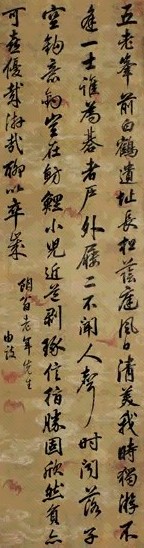 五老峯前白鶴遺址長松蔭庭風日清美我時獨游不
逢一士誰為碁者戶外屨二不聞人聲时聞落子
空鉤意釣在魴鯉小兒近道剥啄信指勝固欣然負亦
可喜優哉游哉聊以卒歲
翁老年先生
由敦